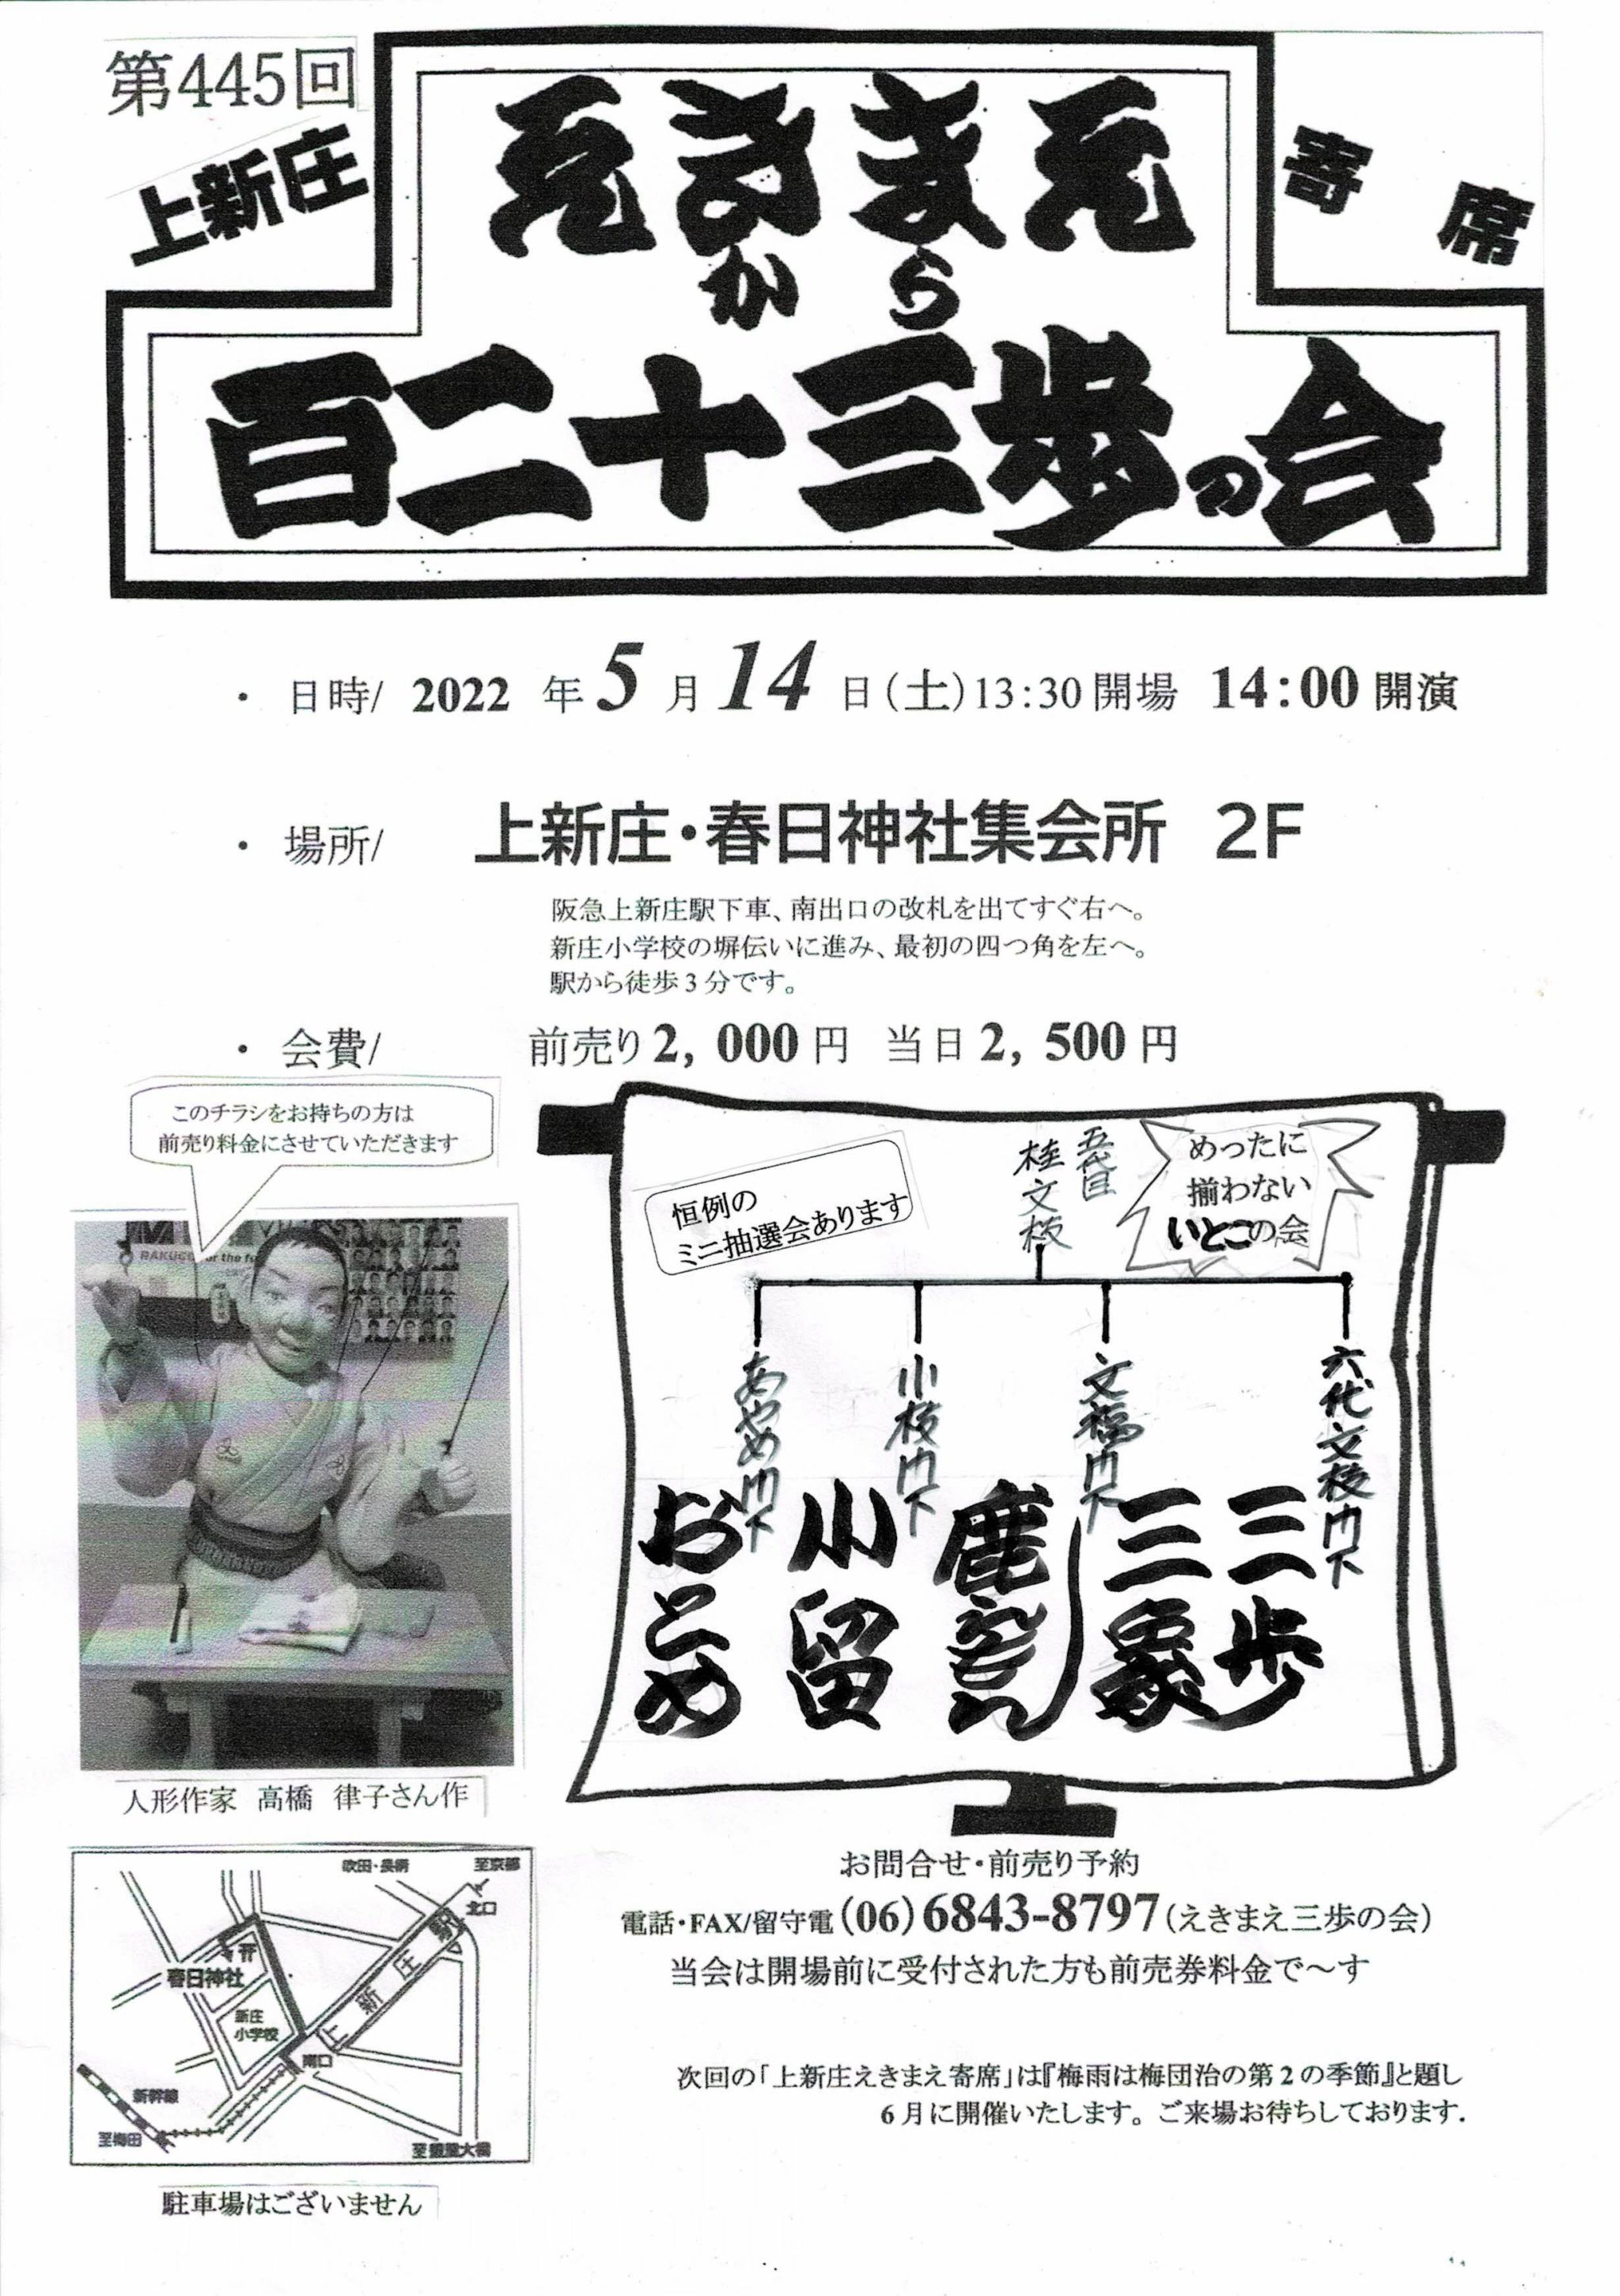 第445回
上新庄
えきまえ
寄席
から
百二十三歩の会
・ 日時/ 2022 年 5 月 14 日(土)13:30開場 14:00開演
・ 場所/ 上新庄・春日神社集会所 2F
阪急上新庄駅下車、南出口の改札を出てすぐ右へ。
新庄小学校の塀伝いに進み、最初の四つ角を左へ。
駅から徒歩3分です。
・ 会費/ 前売り2,000円 当日2,500円
このチラシをお持ちの方は
前売り料金にさせていただきます
恒例の
ミニ抽選会あります
五代目
桂文枝
めったに
揃わない
いとこの会
六代文枝門下
三歩
三象
文福門下
鹿えもん
小枝門下
小留
あやめ門下
おとめ
RAKUGO
人形作家 高橋 律子さん作
吹田・長柄
至京都
北口
上新庄駅
春日神社
新庄
小学校
南口
新幹線
至梅田
至豊里大橋
駐車場はございません
お問合せ・前売り予約
電話・FAX/留守電(06)6843-8797(えきまえ三歩の会)
当会は開場前に受付された方も前売券料金で〜す
次回の「上新庄えきまえ寄席」は『梅雨は梅団治の第2の季節』と題し
6月に開催いたします。ご来場お待ちしております.